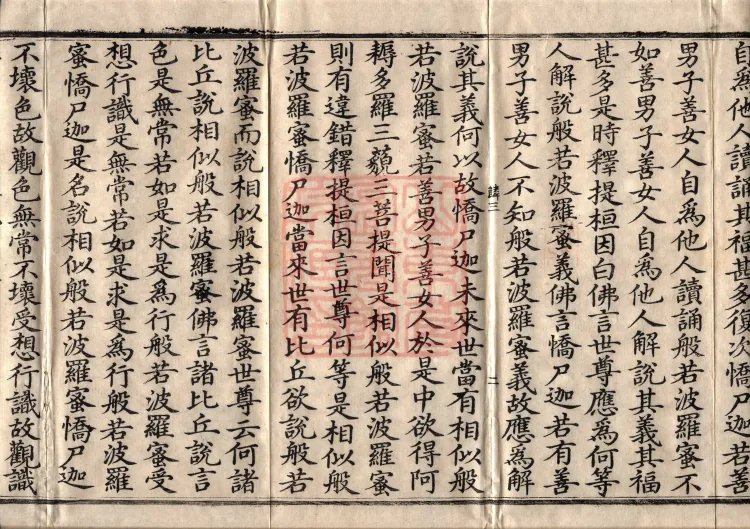 自爲他人讀誦其福甚多復次憍尸迦若善
男子善女人自爲他人讀誦般若波羅蜜不
如善男子善女人自爲他人解說其義其福
甚多是時釋提桓因白佛言世尊應爲何等
人解說般若波羅蜜義佛言憍尸迦若有善
男子善女人不知般若波羅蜜義故應爲解
三 二
說其義何以故憍尸迦未來世當有相似般
若波羅蜜若善男子善女人於是中欲得阿
耨多羅三藐三菩提聞是相似般若波羅蜜
則有違錯釋提桓因言世尊何等是相似般
若波羅蜜憍尸迦當來世有比丘欲說般若
波羅蜜而說相似般若波羅蜜世尊云何諸
比丘說相似般若波羅蜜佛言諸比丘說言
色是無常若如是求是爲行般若波羅蜜受
想行識是無常若如是求是爲行般若波羅
蜜憍尸迦是名說相似般若波羅蜜憍尸迦
不壞色故觀色無常不壞受想行識故觀識